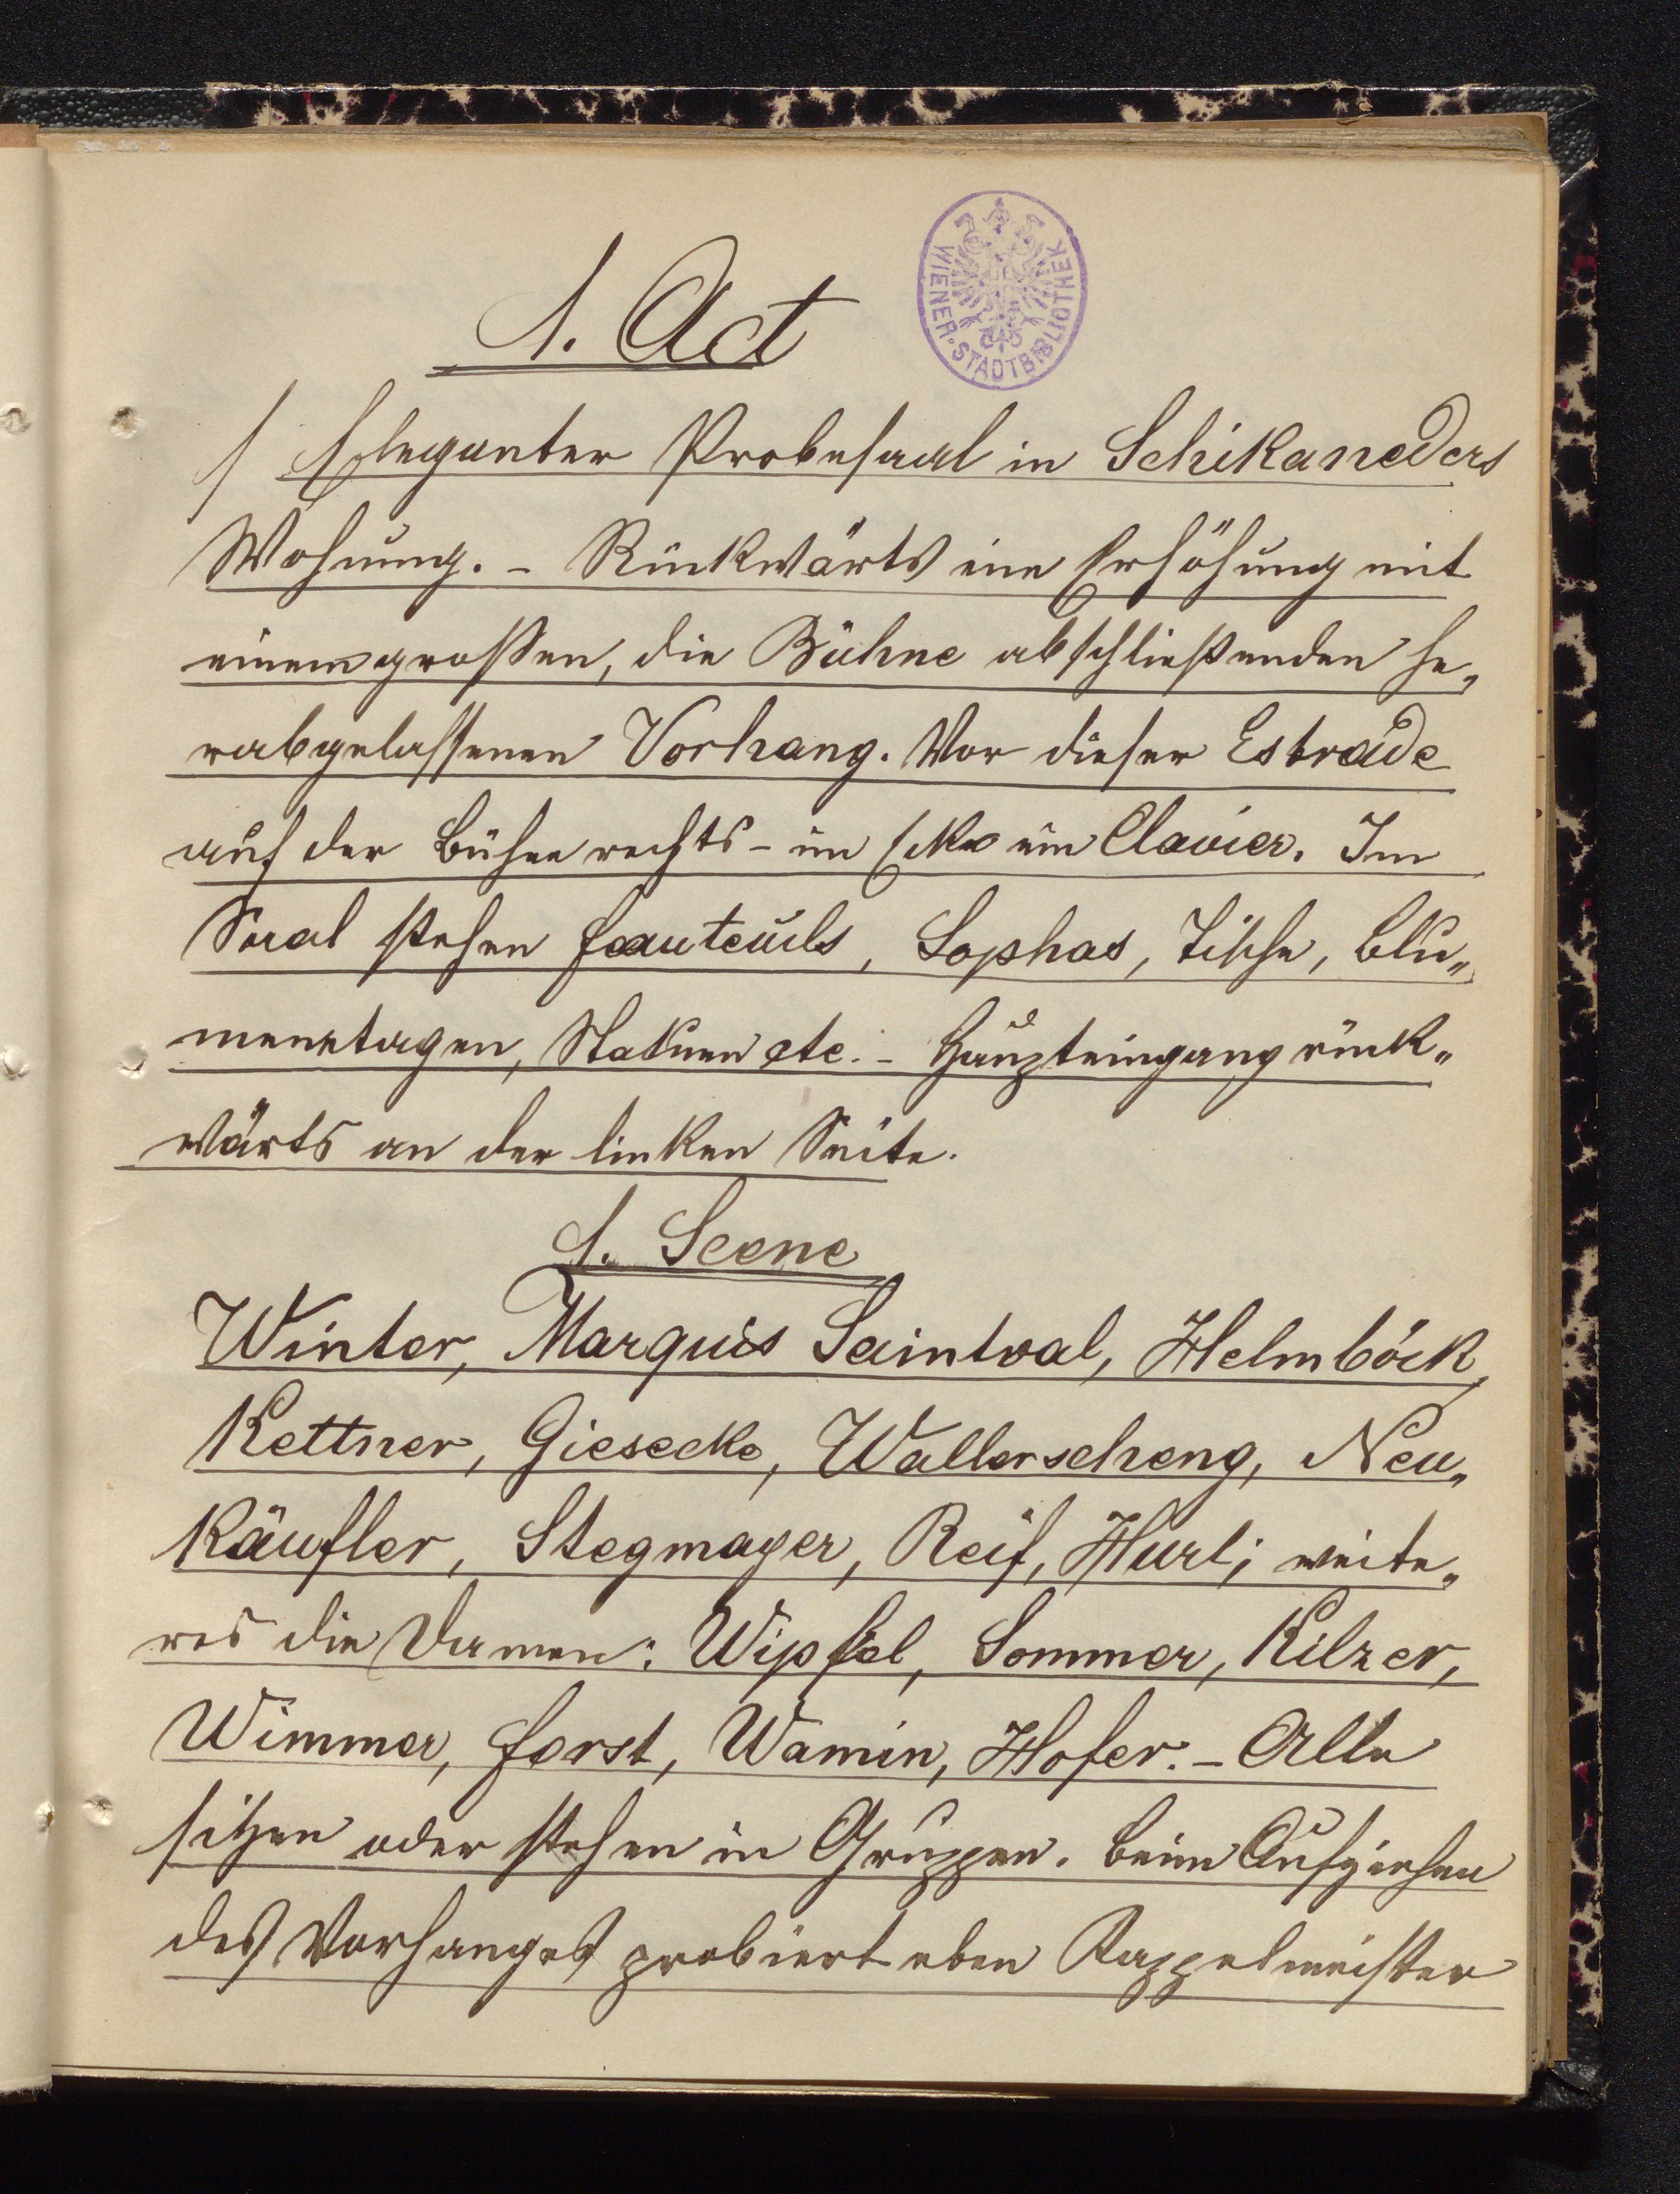 1. Act
WIENER·STADTBIBLIOTHEK
/ Eleganter Probesaal in Schikaneders
Wohnung. – Rückwärts eine Erhöhung mit
einem großen, die Bühne abschließenden he„
rabgelassenen Vorhang. Vor dieser Estrade
auf der Bühne rechts – im Eck ein Clavier. Im
Saal stehen Fauteuils, Sophas, Tische, Blu„
menetagen, Statuen etc. – Haupteingang rück„
wärts an der linken Seite.
1. Scene
Winter, Marquis Saintval, Helmböck,
Kettner, Giesecke, Wallerscheng, Neu„
käufler, Stegmayer, Reif, Hurl; weite„
res die Damen: Wipfel, Sommer, Kilzer,
Wimmer, Forst, Wamin, Hofer. – Alle
sitzen oder stehen in Gruppen. Beim Aufziehen
des Vorhanges probiert eben Kappelmeister